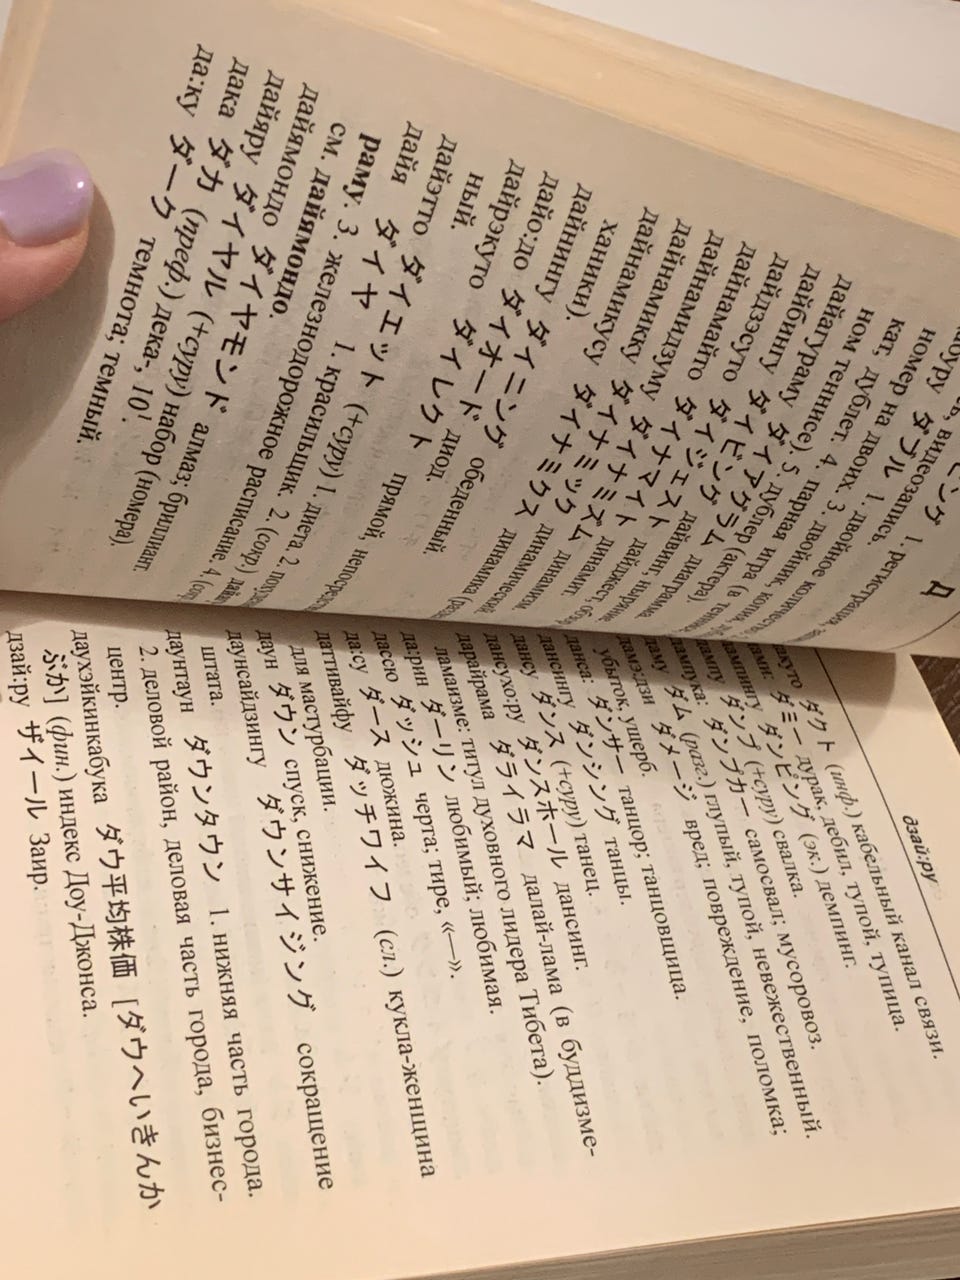 Д
ダビング 1. регистрация,
видеозапись.
ダブル 1. двойное количество.
номер на двоих. 3. двойник, копия,
кат, дублет. 4. парная игра (в теннис
ном теннисе). 5. дублер (актера).
дайагураму ダイアグラム диаграмма.
дайбингу ダイビング дайвинг, ныряние
дайдзэсуто ダイジェスト дайджест,
дайнамайто ダイナマイト динамит.
дайнамидзуму ダイナミズム динамизм.
дайнамикку ダイナミック динамический.
дайнамикусу ダイナミクス динамика
ханики).
дайнингу ダイニング обеденный.
дайо:до ダイオード диод.
дайрэкуто ダイレクト прямой,
ный.
дайэтто ダイエット (+суру) 1. диета. 2.
дайя ダイヤ 1. красильщик. 2. (сокр.)
раму. 3. железнодорожное расписание. 4.
см. дайямондо.
дайямондо ダイヤモンド алмаз; бриллиант.
дайяру ダイヤル (+суру) набор (номера).
дака ダカ (преф.) дека-, 10¹.
да:ку ダーク темнота; темный.
дзай:ру
ダクト (инф.) кабельный канал связи.
ダミー дурак, дебил, тупой, тупица.
ダンピング (эк.) демпинг.
ダンプ (+суру) свалка.
ダンプカー самосвал; мусоровоз.
даму ダム (разг.) глупый, тупой, невежественный.
дамэ:дзи ダメージ вред; повреждение, поломка;
убыток, ущерб.
данса: ダンサー танцор; танцовщица.
дансингу ダンシング танцы.
дансу ダンス (+суру) танец.
дансухо:ру ダンスホール дансинг.
дарайрама ダライラマ далай-лама (в буддизме-
ламаизме: титул духовного лидера Тибета).
да:рин ダーリン любимый; любимая.
дассю ダッシュ черта; тире, «—».
да:су ダース дюжина.
даттивайфу ダッチワイフ (сл.) кукла-женщина
для мастурбации.
даун ダウン спуск, снижение.
даунсайдзингу ダウンサイジング сокращение
штата.
даунтаун ダウンタウン 1. нижняя часть города.
2. деловой район, деловая часть города, бизнес-
центр.
даухэйкинкабука ダウ平均株価 [ダウへいきんか
ぶか] (фин.) индекс Доу-Джонса.
дзай:ру ザイール Заир.